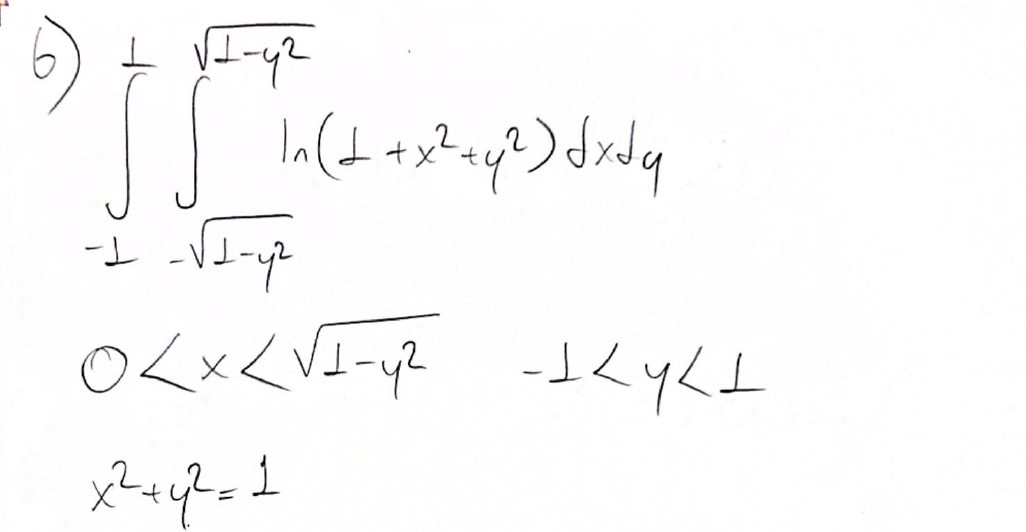 6) ∫_{-1}^{1} ∫_{-√(1-y²)}^{√(1-y²)} ln(1+x²+y²) dxdy
0<x<√(1-y²) -1<y<1
x²+y²=1